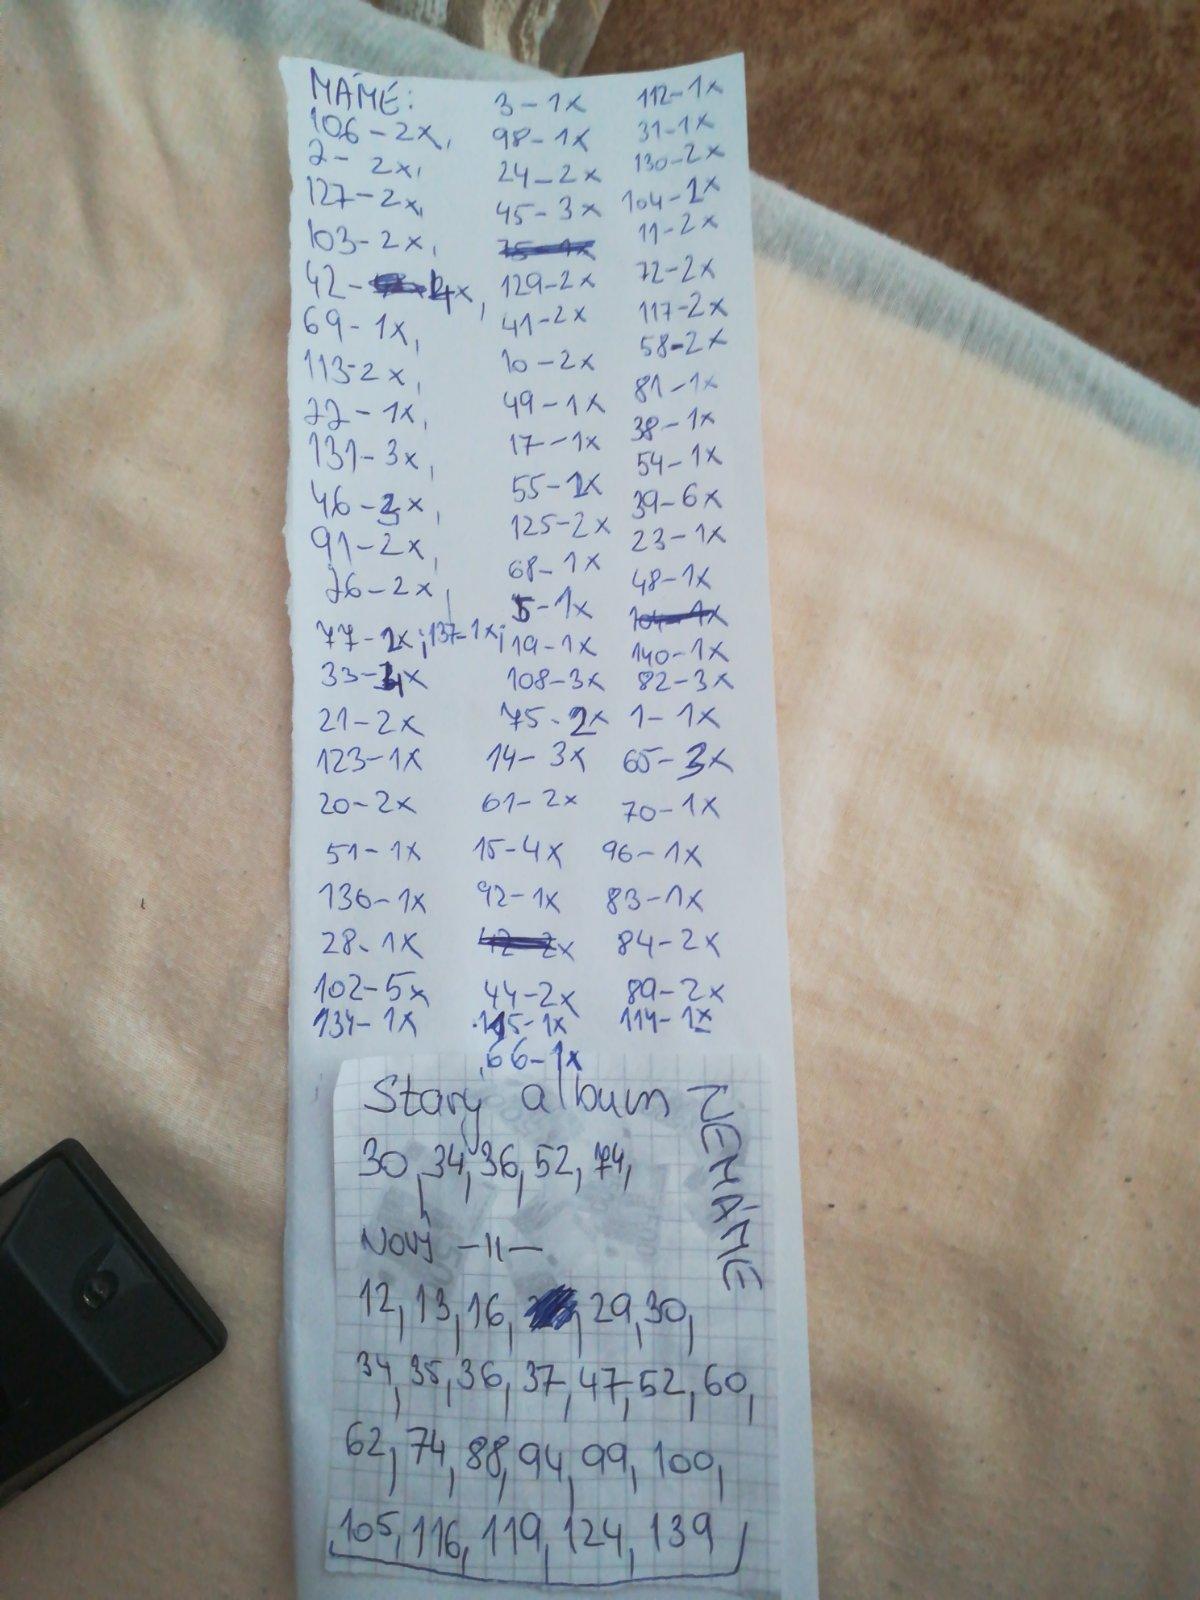 MÁME:
106-2x,
2-2x,
127-2x,
103-2x,
42-4x,
69-1x,
113-2x,
22-1x,
131-3x,
46-3x,
91-2x,
26-2x,
77-1x; 137-1x;
33-4x
21-2x
123-1x
20-2x
51-1x
136-1x
28-1x
102-5x
134-1x
3-1x
98-1x
24-2x
45-3x
75-1x
129-2x
41-2x
10-2x
49-1x
17-1x
55-1x
125-2x
68-1x
5-1x
19-1x
108-3x
75-2x
14-3x
61-2x
15-4x
92-1x
42-2x
44-2x
115-1x
66-1x
112-1x
31-1x
130-2x
104-2x
11-2x
72-2x
117-2x
58-2x
81-1x
38-1x
54-1x
39-6x
23-1x
48-1x
104-1x
140-1x
82-3x
1-1x
65-3x
70-1x
96-1x
83-1x
84-2x
89-2x
114-1x
Starý album
30, 34, 36, 52, 74,
Nový -II-
12, 13, 16, 29, 30,
34, 35, 36, 37, 47, 52, 60,
62, 74, 88, 94, 99, 100,
105, 116, 119, 124, 139
NEMÁME